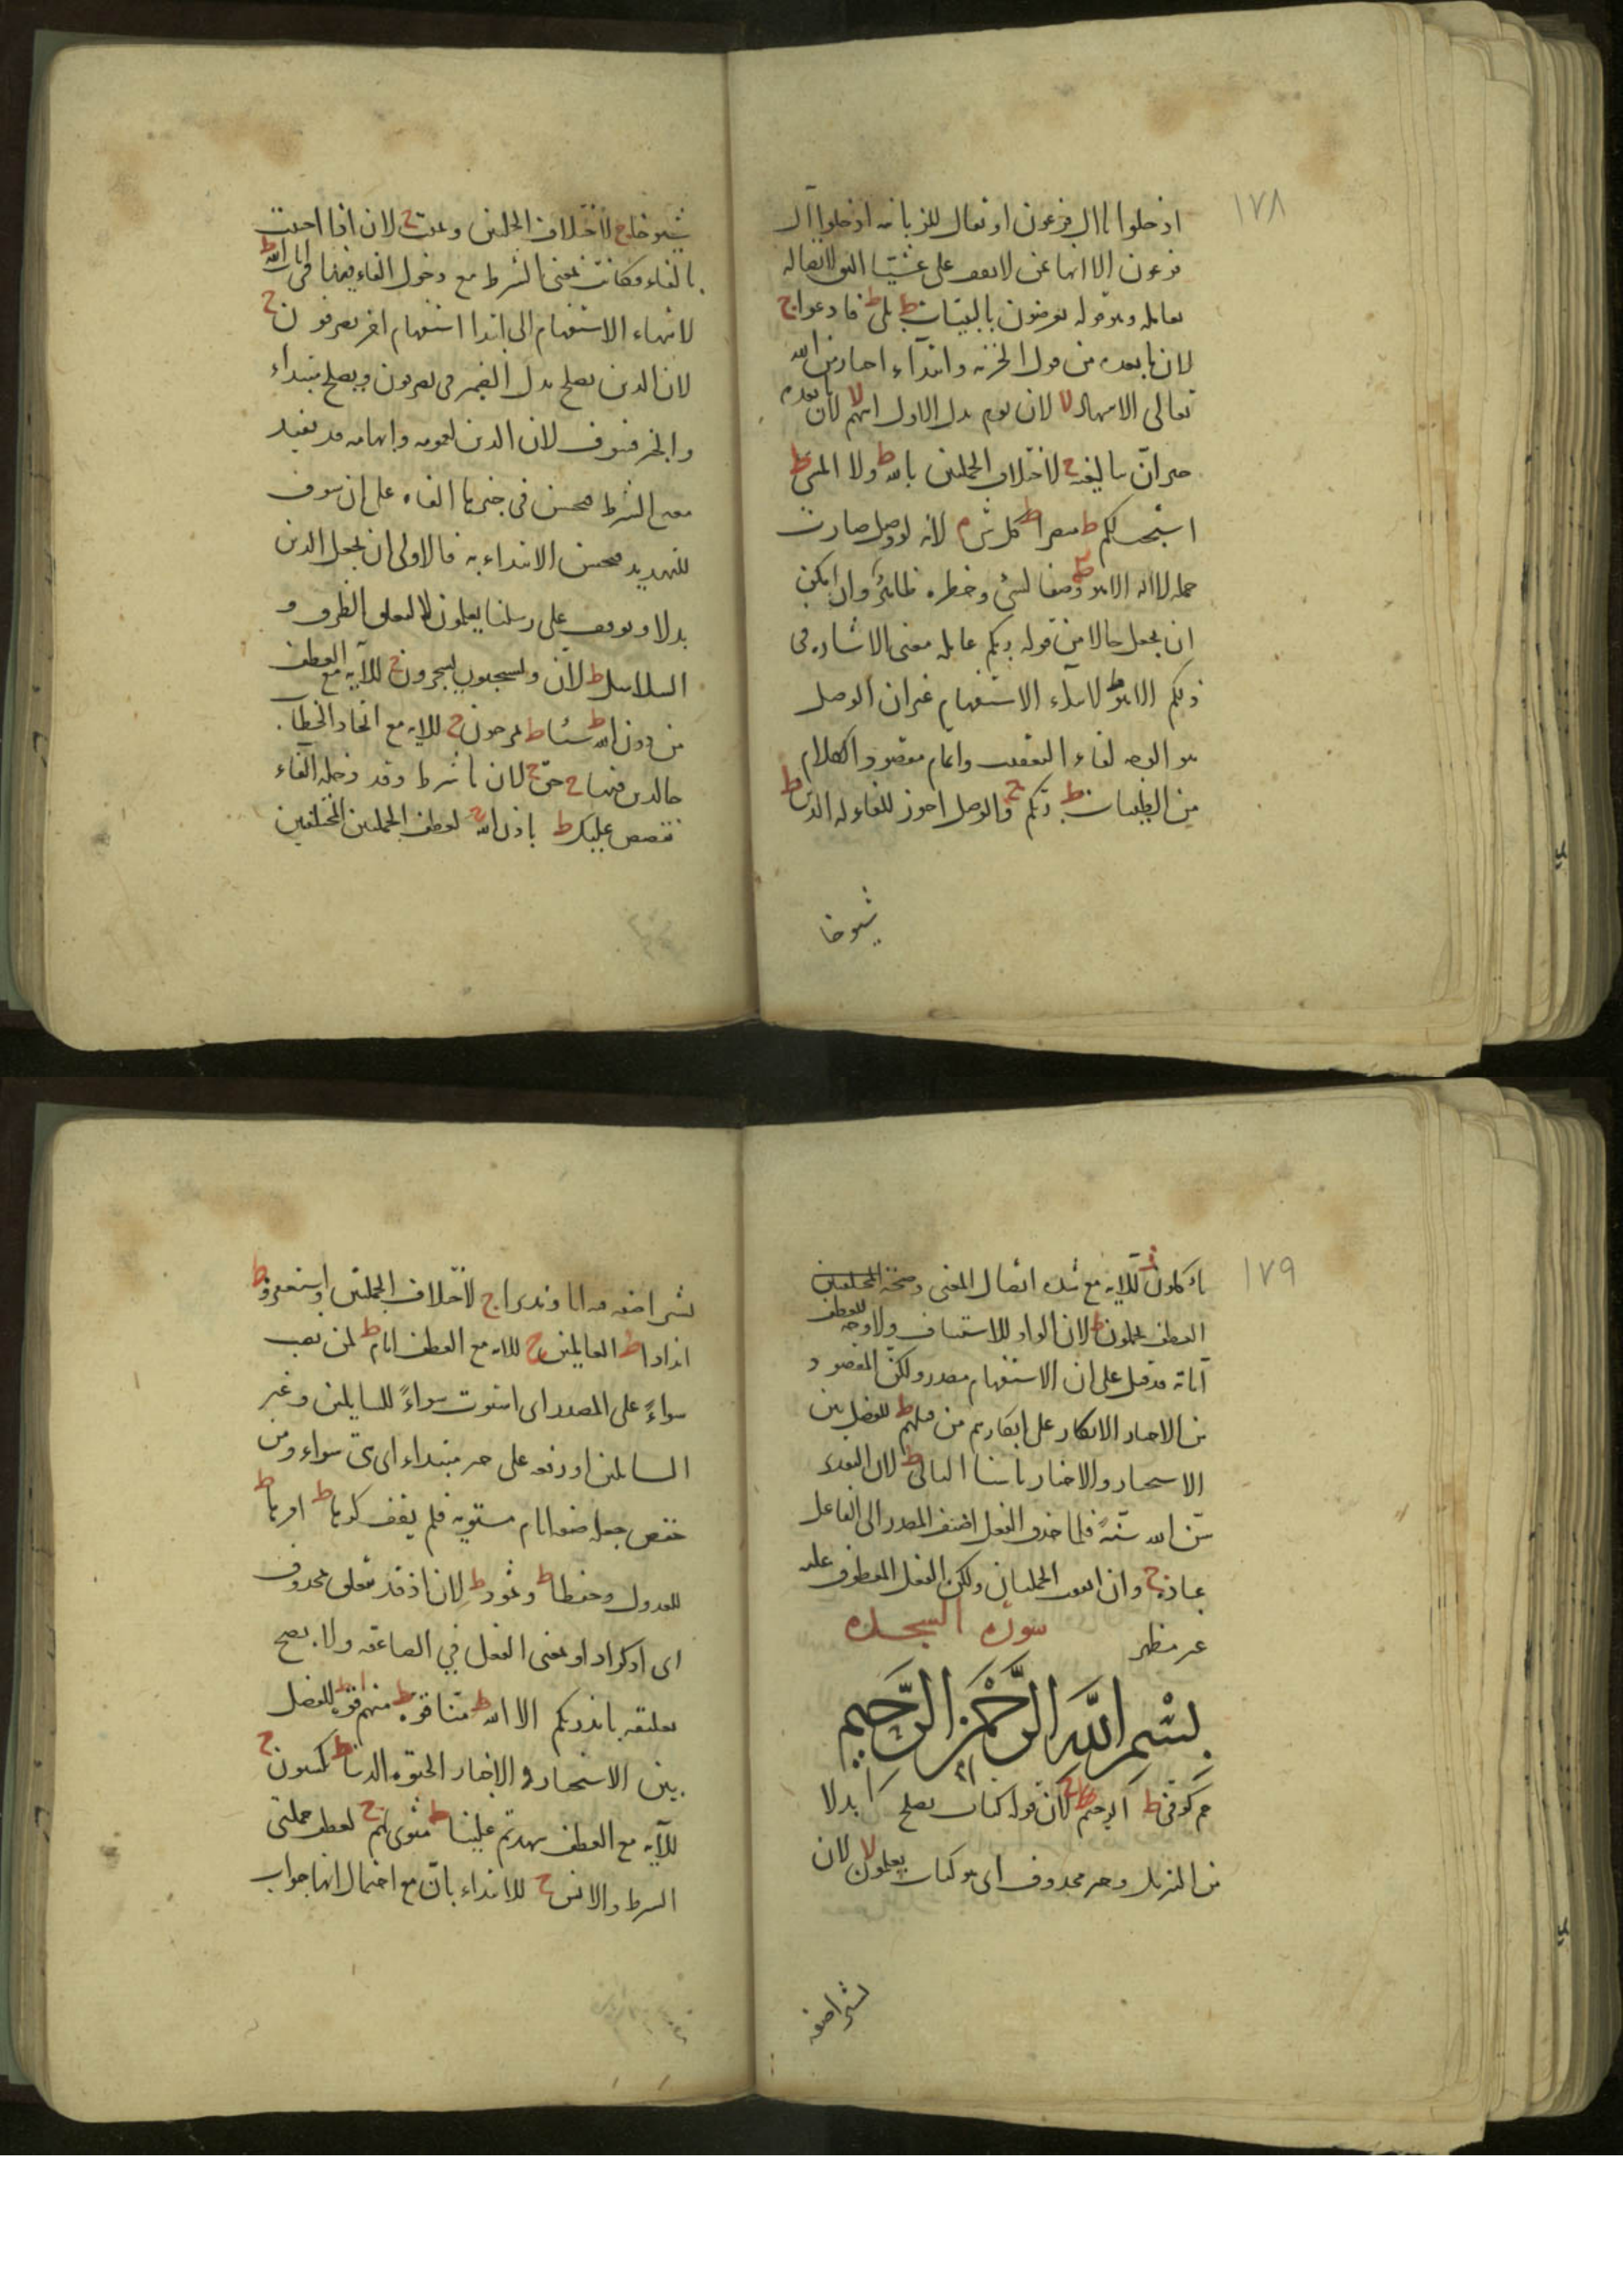 ١٧٨
ادخلوا ياال فرعون او تعال للزبانيه ادخلوا ال
فرعون الا انها عن لا يوقف على عشيا لاتصاله
بعامله وهو قوله يعرضون بالبينات ط بلى ط فادعوا ج
لان ما بعده من قول الخزنه وابتداء اخبار من الله
تعالى الاشهاد لا لان يوم بدل الاول انهم لا لان ما بعده
خبر ان ببالغيه ج لاختلاف الجملتين بالله ط ولا المسئ ط
استجب لكم ط مبصرا ط كل شئ م لانه لو وصل صارت
جمله لا اله الا هو وصفا لشئ وخطره ظاهر وان امكن
ان يجعل حالا من قوله ربكم عامله معنى الاشاره فى
ذلكم الا هو ط لابتداء الاستفهام غير ان الوصل
هو الوجه لفاء التعقيب واتمام مقصود الكلام
من الطيبات ط ربكم ج والوصل اجوز للفاء له الدين ط
شيوخا
شيوخا ج لاختلاف الجملتين ويميت ج لان اذا اجيبت
بالفاء فكانت بمعنى الشرط مع دخول الفاء فيها فى ايات الله ط
لانتهاء الاستفهام الى ابتدا استفهام اخر يصرفون ج
لان الذين يصلح بدل الضمير فى يصرفون ويصلح مبتداء
والخبر فسوف لان الذين لعمومه وابهامه قد يفيد
معنى الشرط فحسن فى خبرها الفاء على ان سوف
للتهديد فحسن الابتداء به فالاولى ان يجعل الذين
بدلا ويوقف على رسلنا يعلمون لا لتعلق الظرف و
السلاسل ط لان يسحبون يسجرون ج للايه مع العطف
من دون الله ط شيئا ط تمرحون ج للايه مع اتحاد الخطاب
خالدين فيها ج حق ج لان ما شرط وقد دخله الفاء
نقصص عليك ط باذن الله ج لعطف الجملتين المختلفتين
١٧٩
تاكلون ز للايه مع شدة اتصال المعنى وصحة
العطف تحملون ط لان الواو للاستيناف ولا وجه للعطف
اياته قد قيل على ان الاستفهام مصدر ولكن المقصود
من الاخبار الانكار على انكارهم من قبلهم ط للفصل بين
الاستخبار والاخبار باسنا التالى ط لان التقدير
سن الله سنة فلما حذف الفعل اضيف المصدر الى الفاعل
عباده ج وان اتفقت الجملتان ولكن الفعل المعطوف عليه
غير مظهر
سورة السجده
بسم الله الرحمن الرحيم
حم كوفى ط الرحيم ط ج لان قوله كتاب يصلح بدلا
من التنزيل وخبر محذوف اى هو كتاب يعلمون لا لان
بشيرا صفه
بشيرا صفه قرانا ونذيرا ج لاختلاف الجملتين واستغفروه ط
اندادا ط العالمين ج للايه مع العطف ايام ط لمن نصب
سواءً على المصدر اى استوت سواءً للسايلين وغير
السايلين او رفعه على خبر مبتداء اى هى سواء ومن
خفض جعله صفة ايام مستويه فلم يقف كرها ط امرها ط
للعدول وحفظا ط وثمود ط لان اذ قد يتعلق بمحذوف
اى اذكر اذ او بمعنى الفعل فى الصاعقه ولا يصح
تعلقه بانذرتكم الا الله ط منا قوة ط منهم قوة ط للفصل
بين الاستخبار والاخبار الحيوه الدنيا ط يكسبون ج
للايه مع العطف شهدتم علينا ط مثوى لهم ج لعطف جملتى
الشرط والانس ج للابتداء بان مع احتمال انها جواب